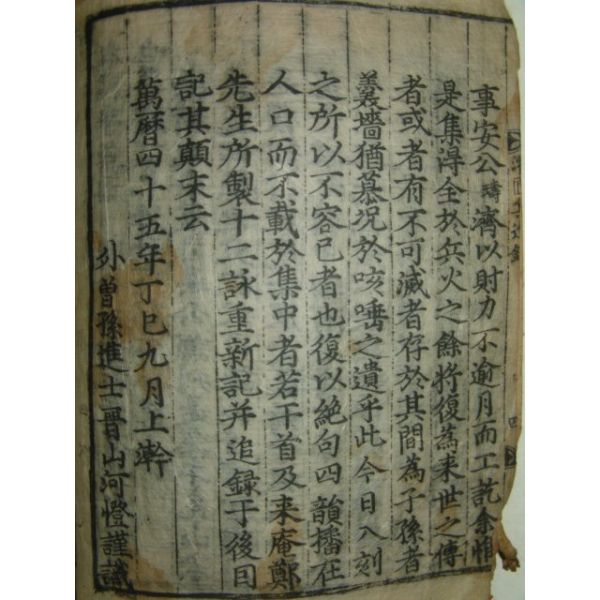 事安公疇濟以財力不逾月而工訖余惟
是集淂全於兵火之餘將復為来世之傳
者或者有不可滅者存於其間為子孫者
羹墻猶慕况於咳唾之遺乎此今日入刻
之所以不容已者也復以絶句四韻播在
人口而不載於集中者若干首及来庵鄭
先生所製十二詠重新記并追録于後因
記其顛末云
萬曆四十五年丁巳九月上澣
外曾孫進士晋山河憕謹識